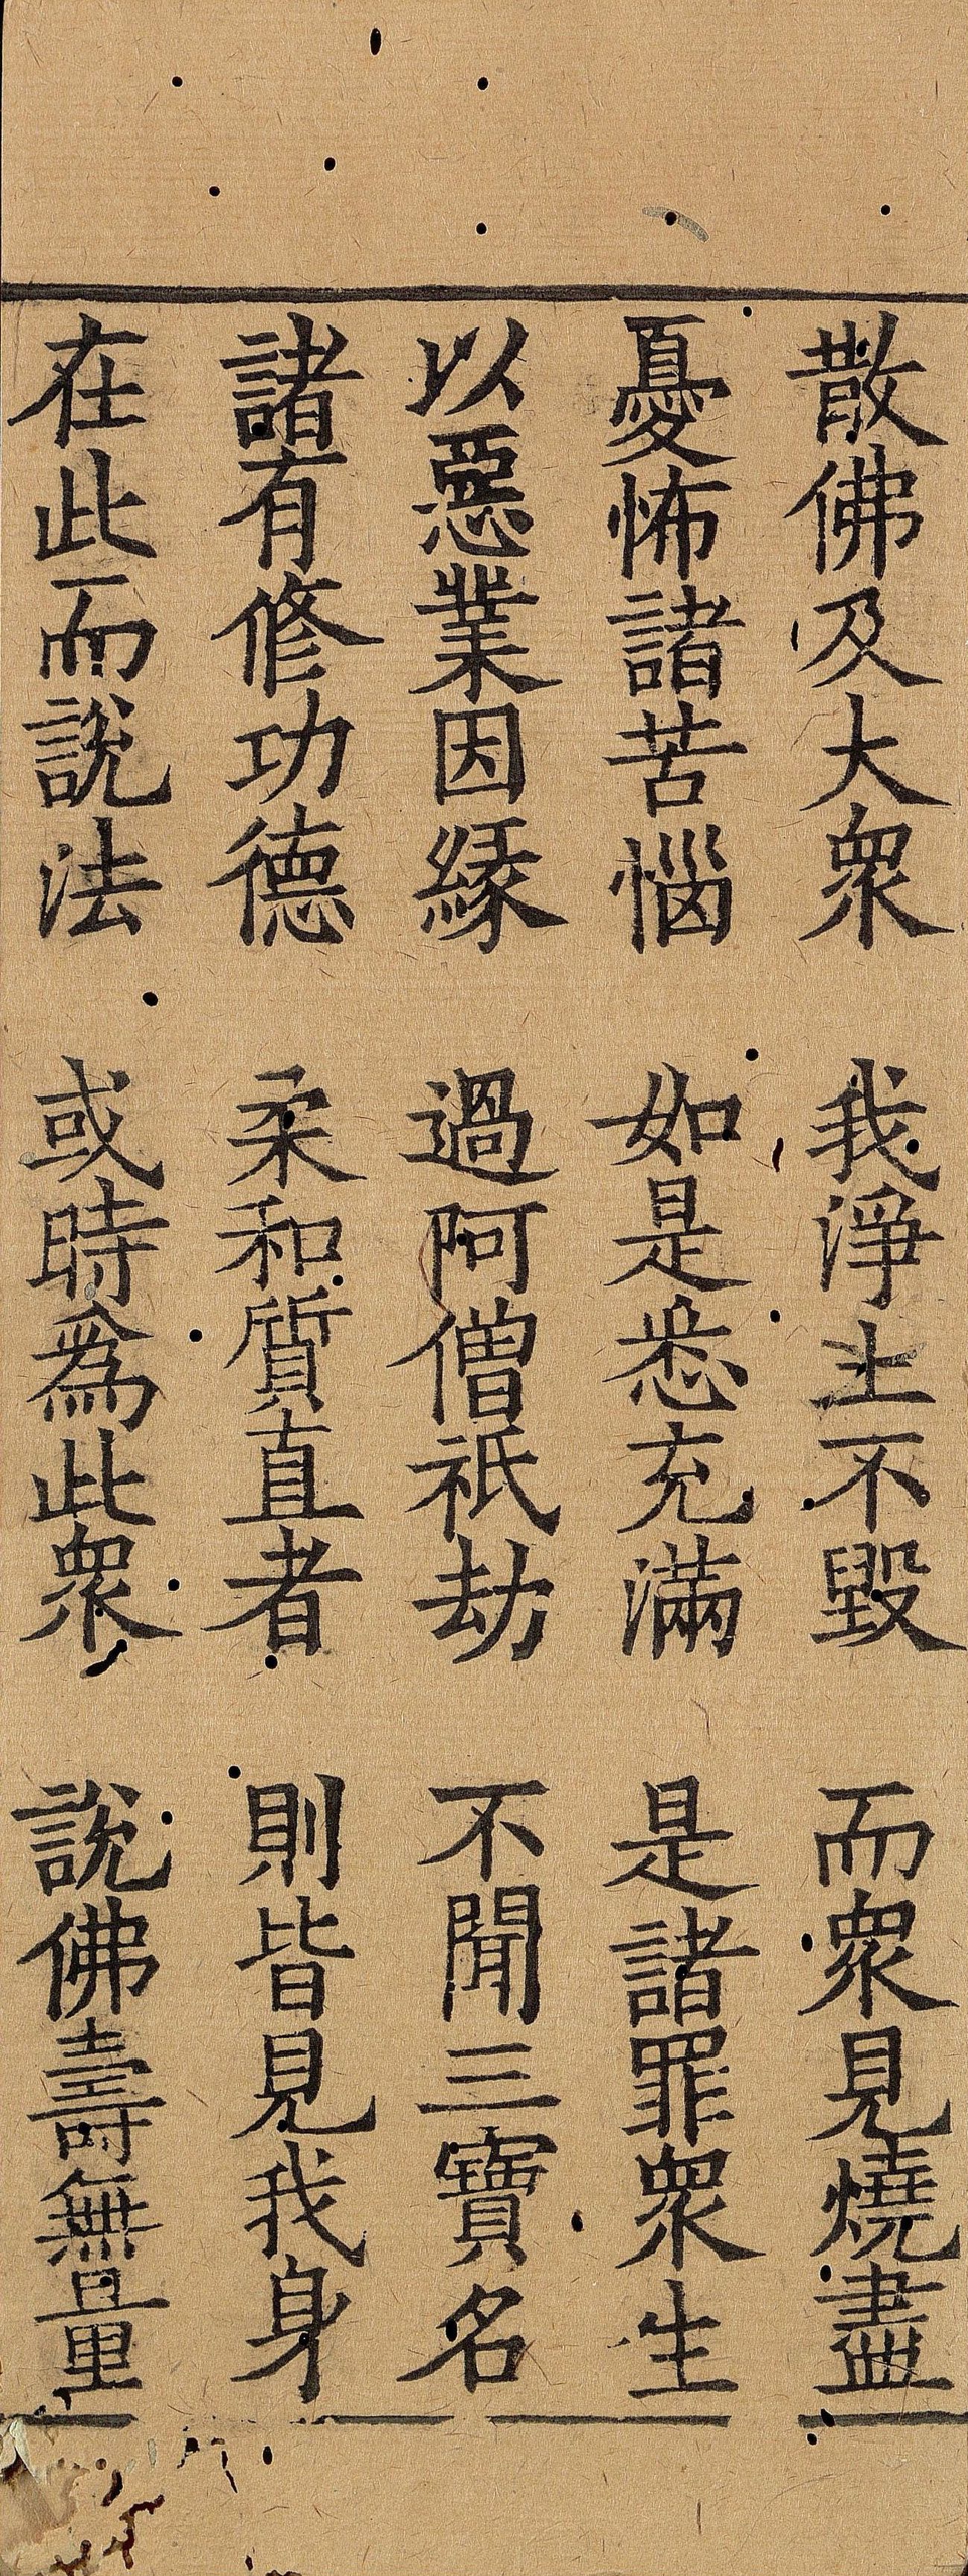 散佛及大衆　我淨土不毀　而衆見燒盡
憂怖諸苦惱　如是悉充滿　是諸罪衆生
以惡業因緣　過阿僧祇劫　不聞三寶名
諸有修功德　柔和質直者　則皆見我身
在此而說法　或時爲此衆　說佛壽無量